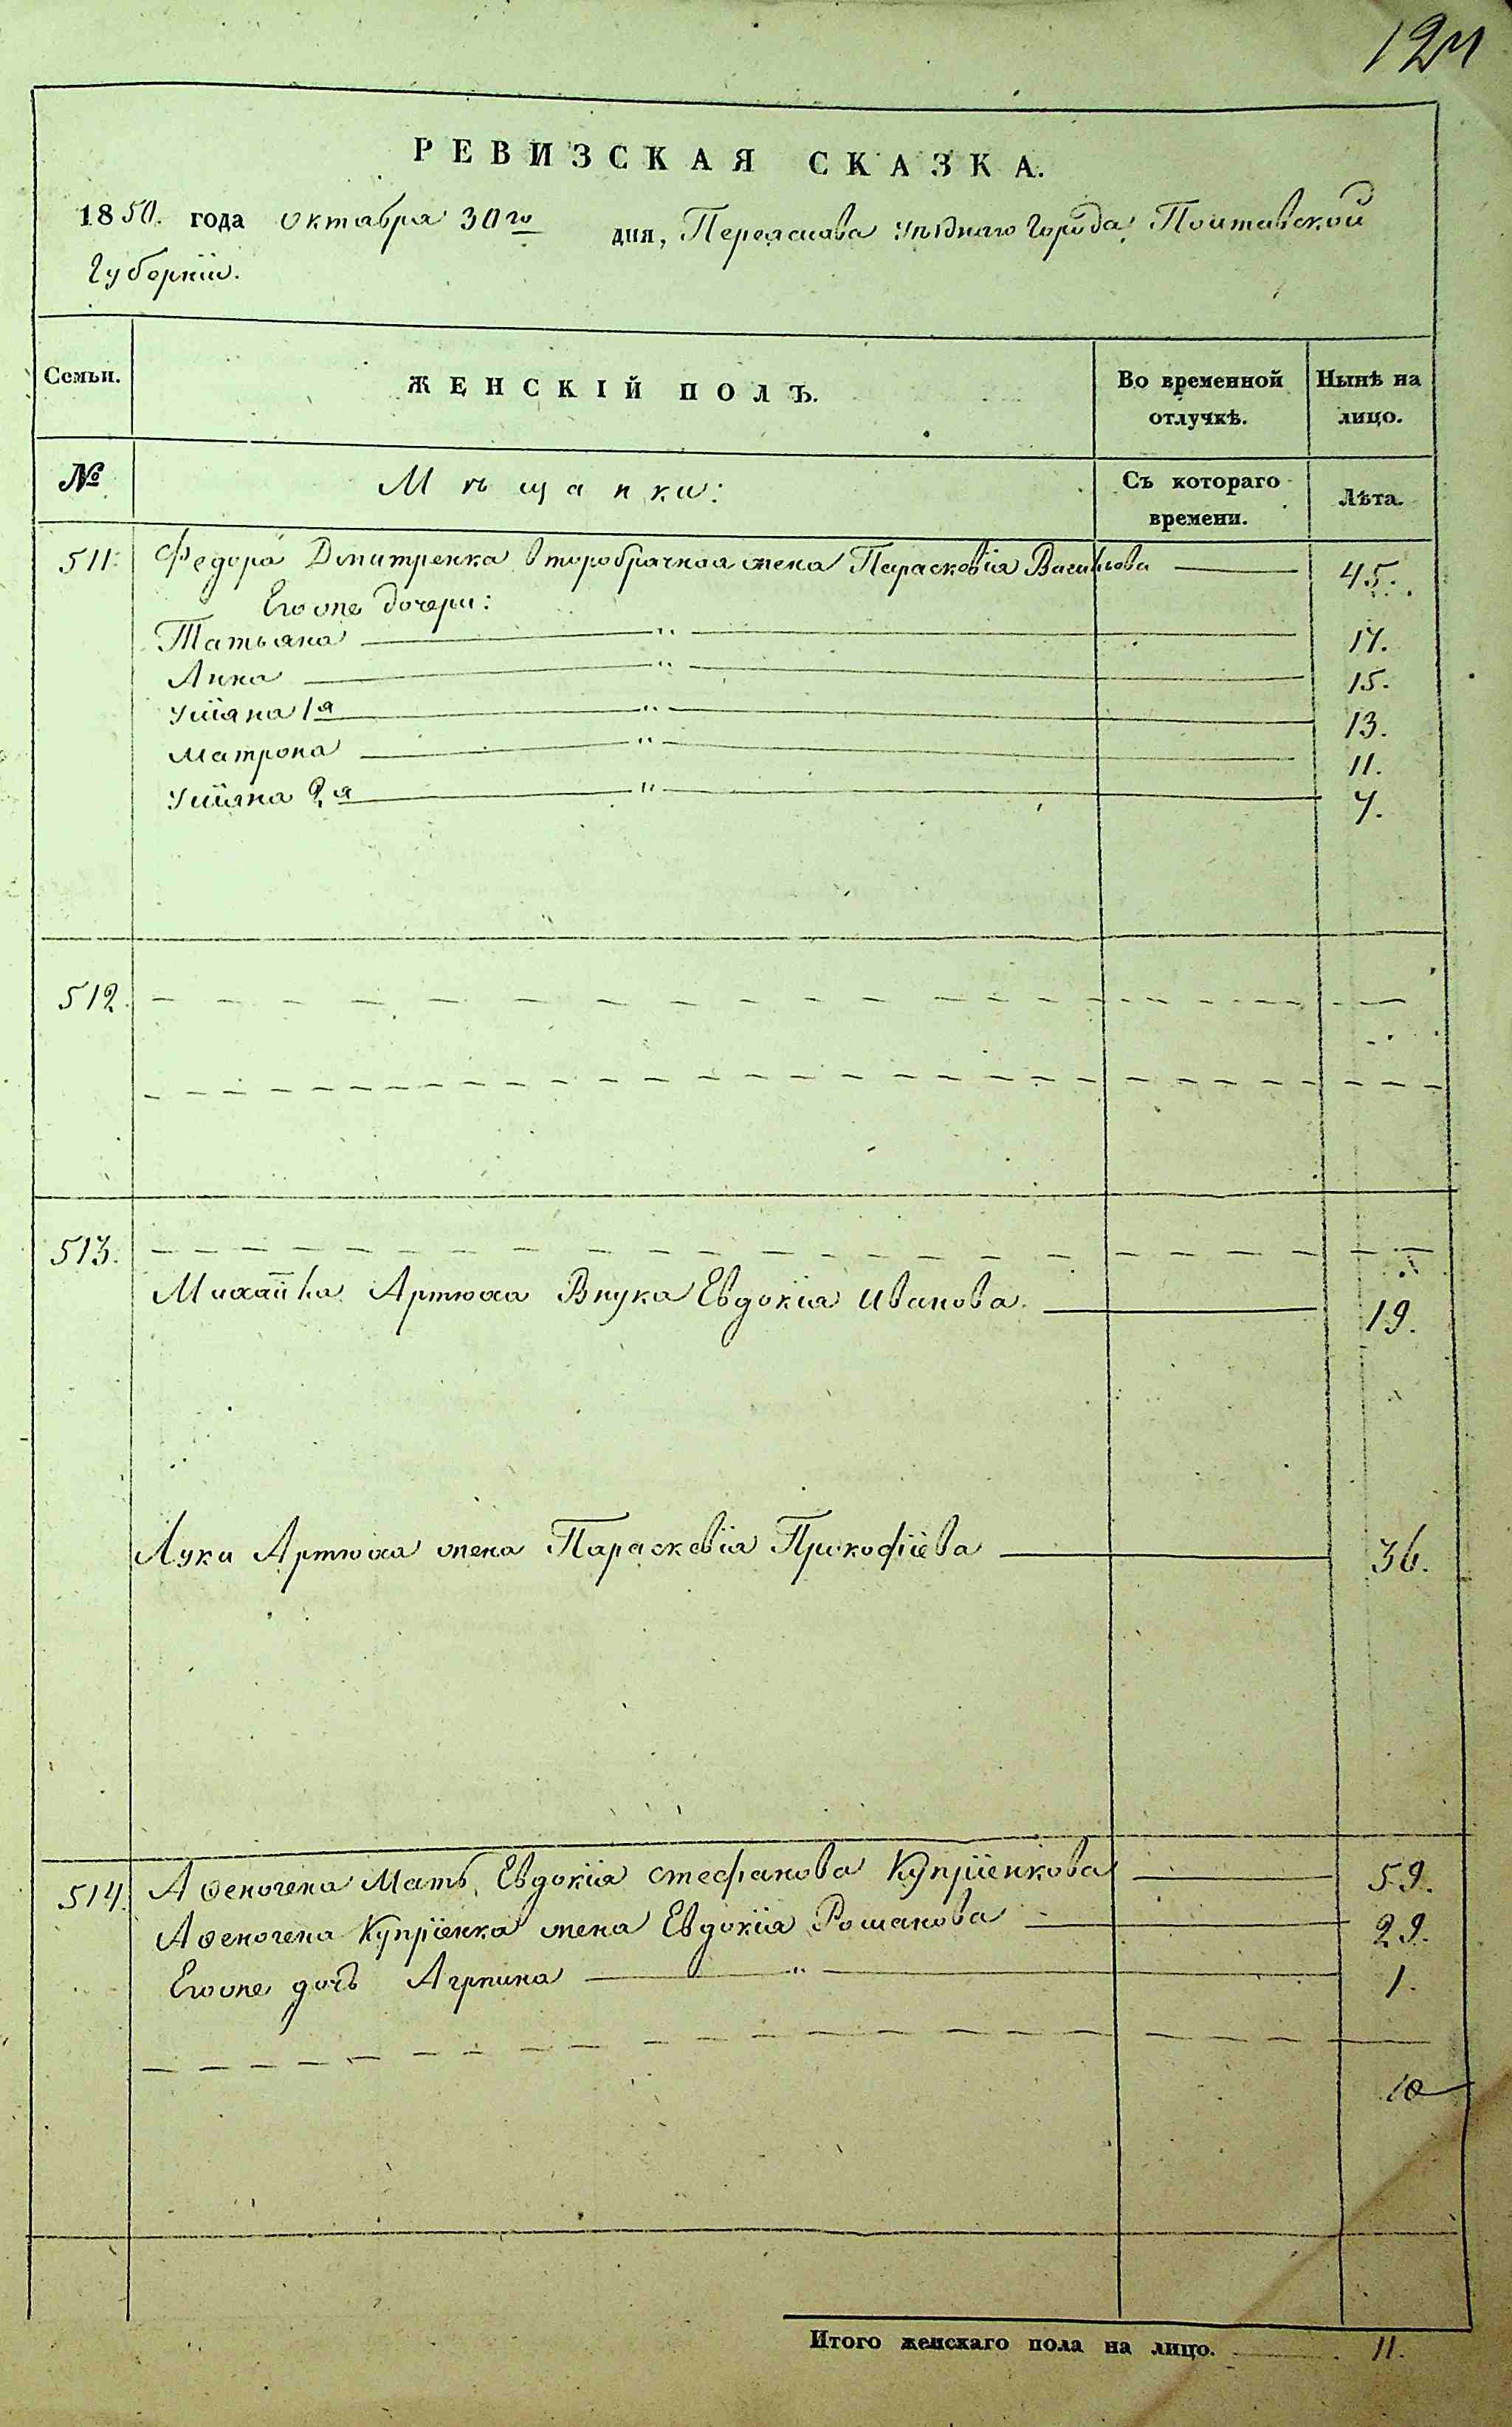 124
РЕВИЗСКАЯ СКАЗКА.
1850. года октября 30го дня, Переяслава уѣзднаго города, Полтавской
Губерніи.
Семьи. ЖЕНСКІЙ ПОЛЪ. Во временной отлучкѣ. Нынѣ на лицо.
№ Мѣщанки: Съ котораго времени. Лѣта.
511. Федора Дмитренка второбрачная жена Парасковія Васильева 45.
Его же дочери:
Татьяна " 17.
Анна " 15.
Уліяна 1я " 13.
Матрона " 11.
Уліяна 2я " 7.
512.
513.
Михайла Артюха Внука Евдокія Иванова. 19.
Луки Артюха жена Параскевія Прокофіева 36.
514. Афеногена Мать Евдокія Стефанова Купріенкова 59.
Афеногена Купріенка жена Евдокія Романова 29.
Его же дочь Агрпина " 1.
10
Итого женскаго пола на лицо. 11.